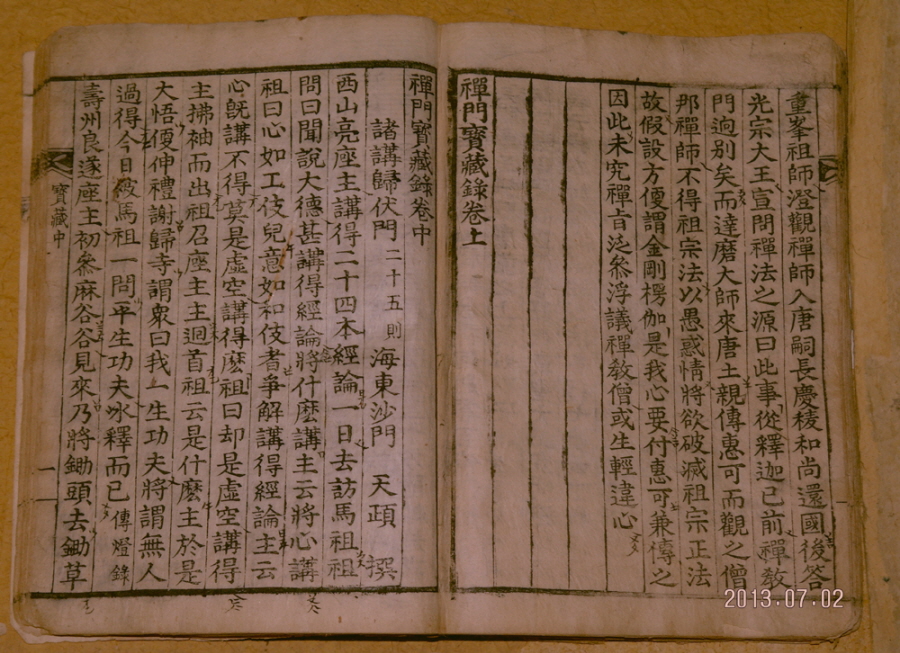 重峯祖師澄觀禪師入唐嗣長慶稜和尚還國後答
光宗大王宣問禪法之源曰此事從釋迦已前禪教
門逈別矣而達磨大師來唐土親傳惠可而觀之僧
那禪師不得祖宗法以愚惑情將欲破滅祖宗正法
故假設方便謂金剛楞伽是我心要付惠可兼傳之
因此未究禪旨泛叅浮議禪教僧或生輕違心
禪門寶藏錄卷上
禪門寶藏錄卷中
諸講歸伏門二十五則 海東沙門 天頙 撰
西山亮座主講得二十四本經論一日去訪馬祖祖
問曰聞說大德甚講得經論將什麽講主云將心講
祖曰心如工伎兒意如和伎者爭解講得經論主云
心旣講不得莫是虛空講得麽祖曰却是虛空講得
主拂袖而出祖召座主主迴首祖云是什麽主於是
大悟便伸禮謝歸寺謂衆曰我一生功夫將謂無人
過得今日被馬祖一問平生功夫氷釋而已 傳燈錄
壽州良遂座主初叅麻谷谷見來乃將鋤頭去鋤草
寶藏中
一
2013.07.02